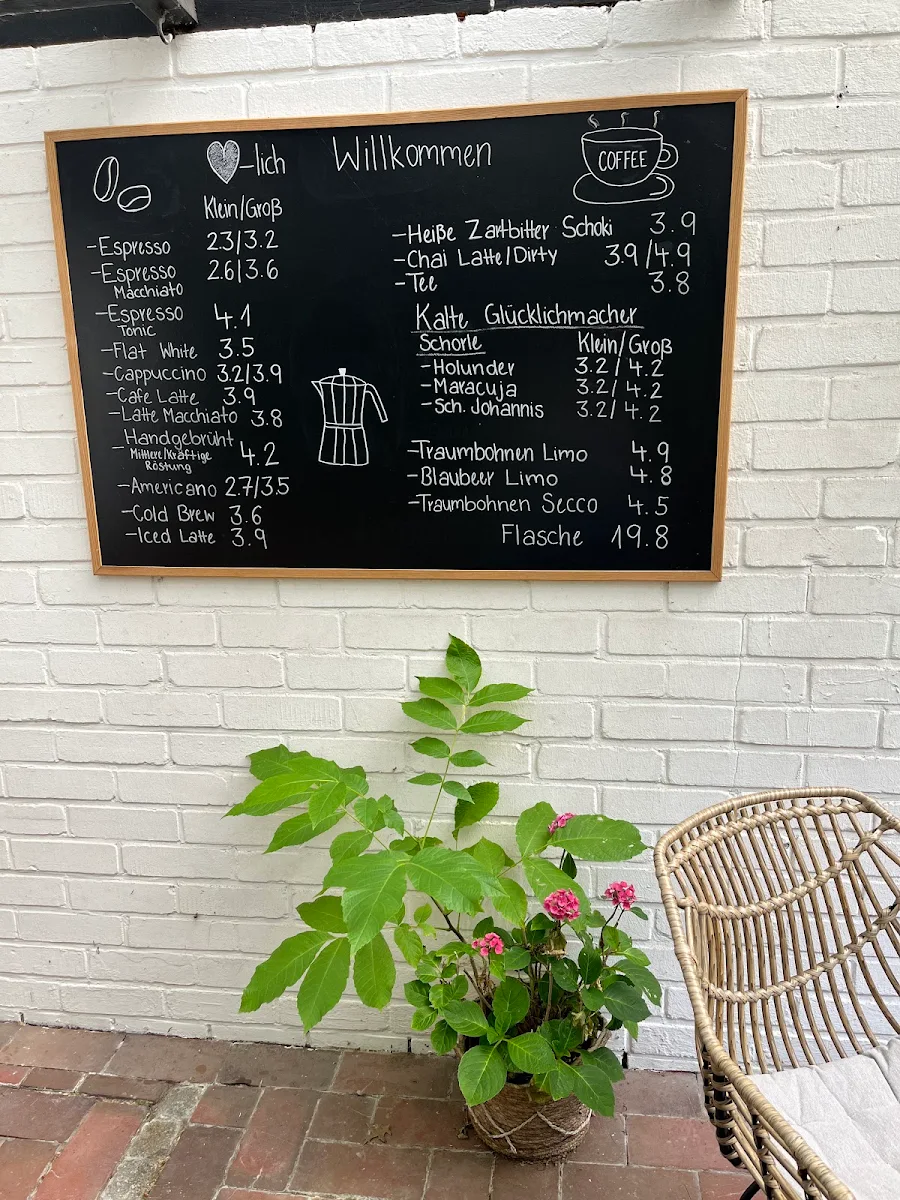 -lich Willkommen
COFFEE
Klein/Groß
-Espresso 2.3/3.2
-Espresso 2.6/3.6
Macchiato
-Espresso 4.1
Tonic
-Flat White 3.5
-Cappuccino 3.2/3.9
-Cafe Latte 3.9
-Latte Macchiato 3.8
-Handgebrüht 4.2
Mittlere/Kräftige
Röstung
-Americano 2.7/3.5
-Cold Brew 3.6
-Iced Latte 3.9
-Heiße Zartbitter Schoki 3.9
-Chai Latte/Dirty 3.9/4.9
-Tee 3.8
Kalte Glücklichmacher
Schorle Klein/Groß
-Holunder 3.2/4.2
-Maracuja 3.2/4.2
-Sch. Johannis 3.2/4.2
-Traumbohnen Limo 4.9
-Blaubeer Limo 4.8
-Traumbohnen Secco 4.5
Flasche 19.8